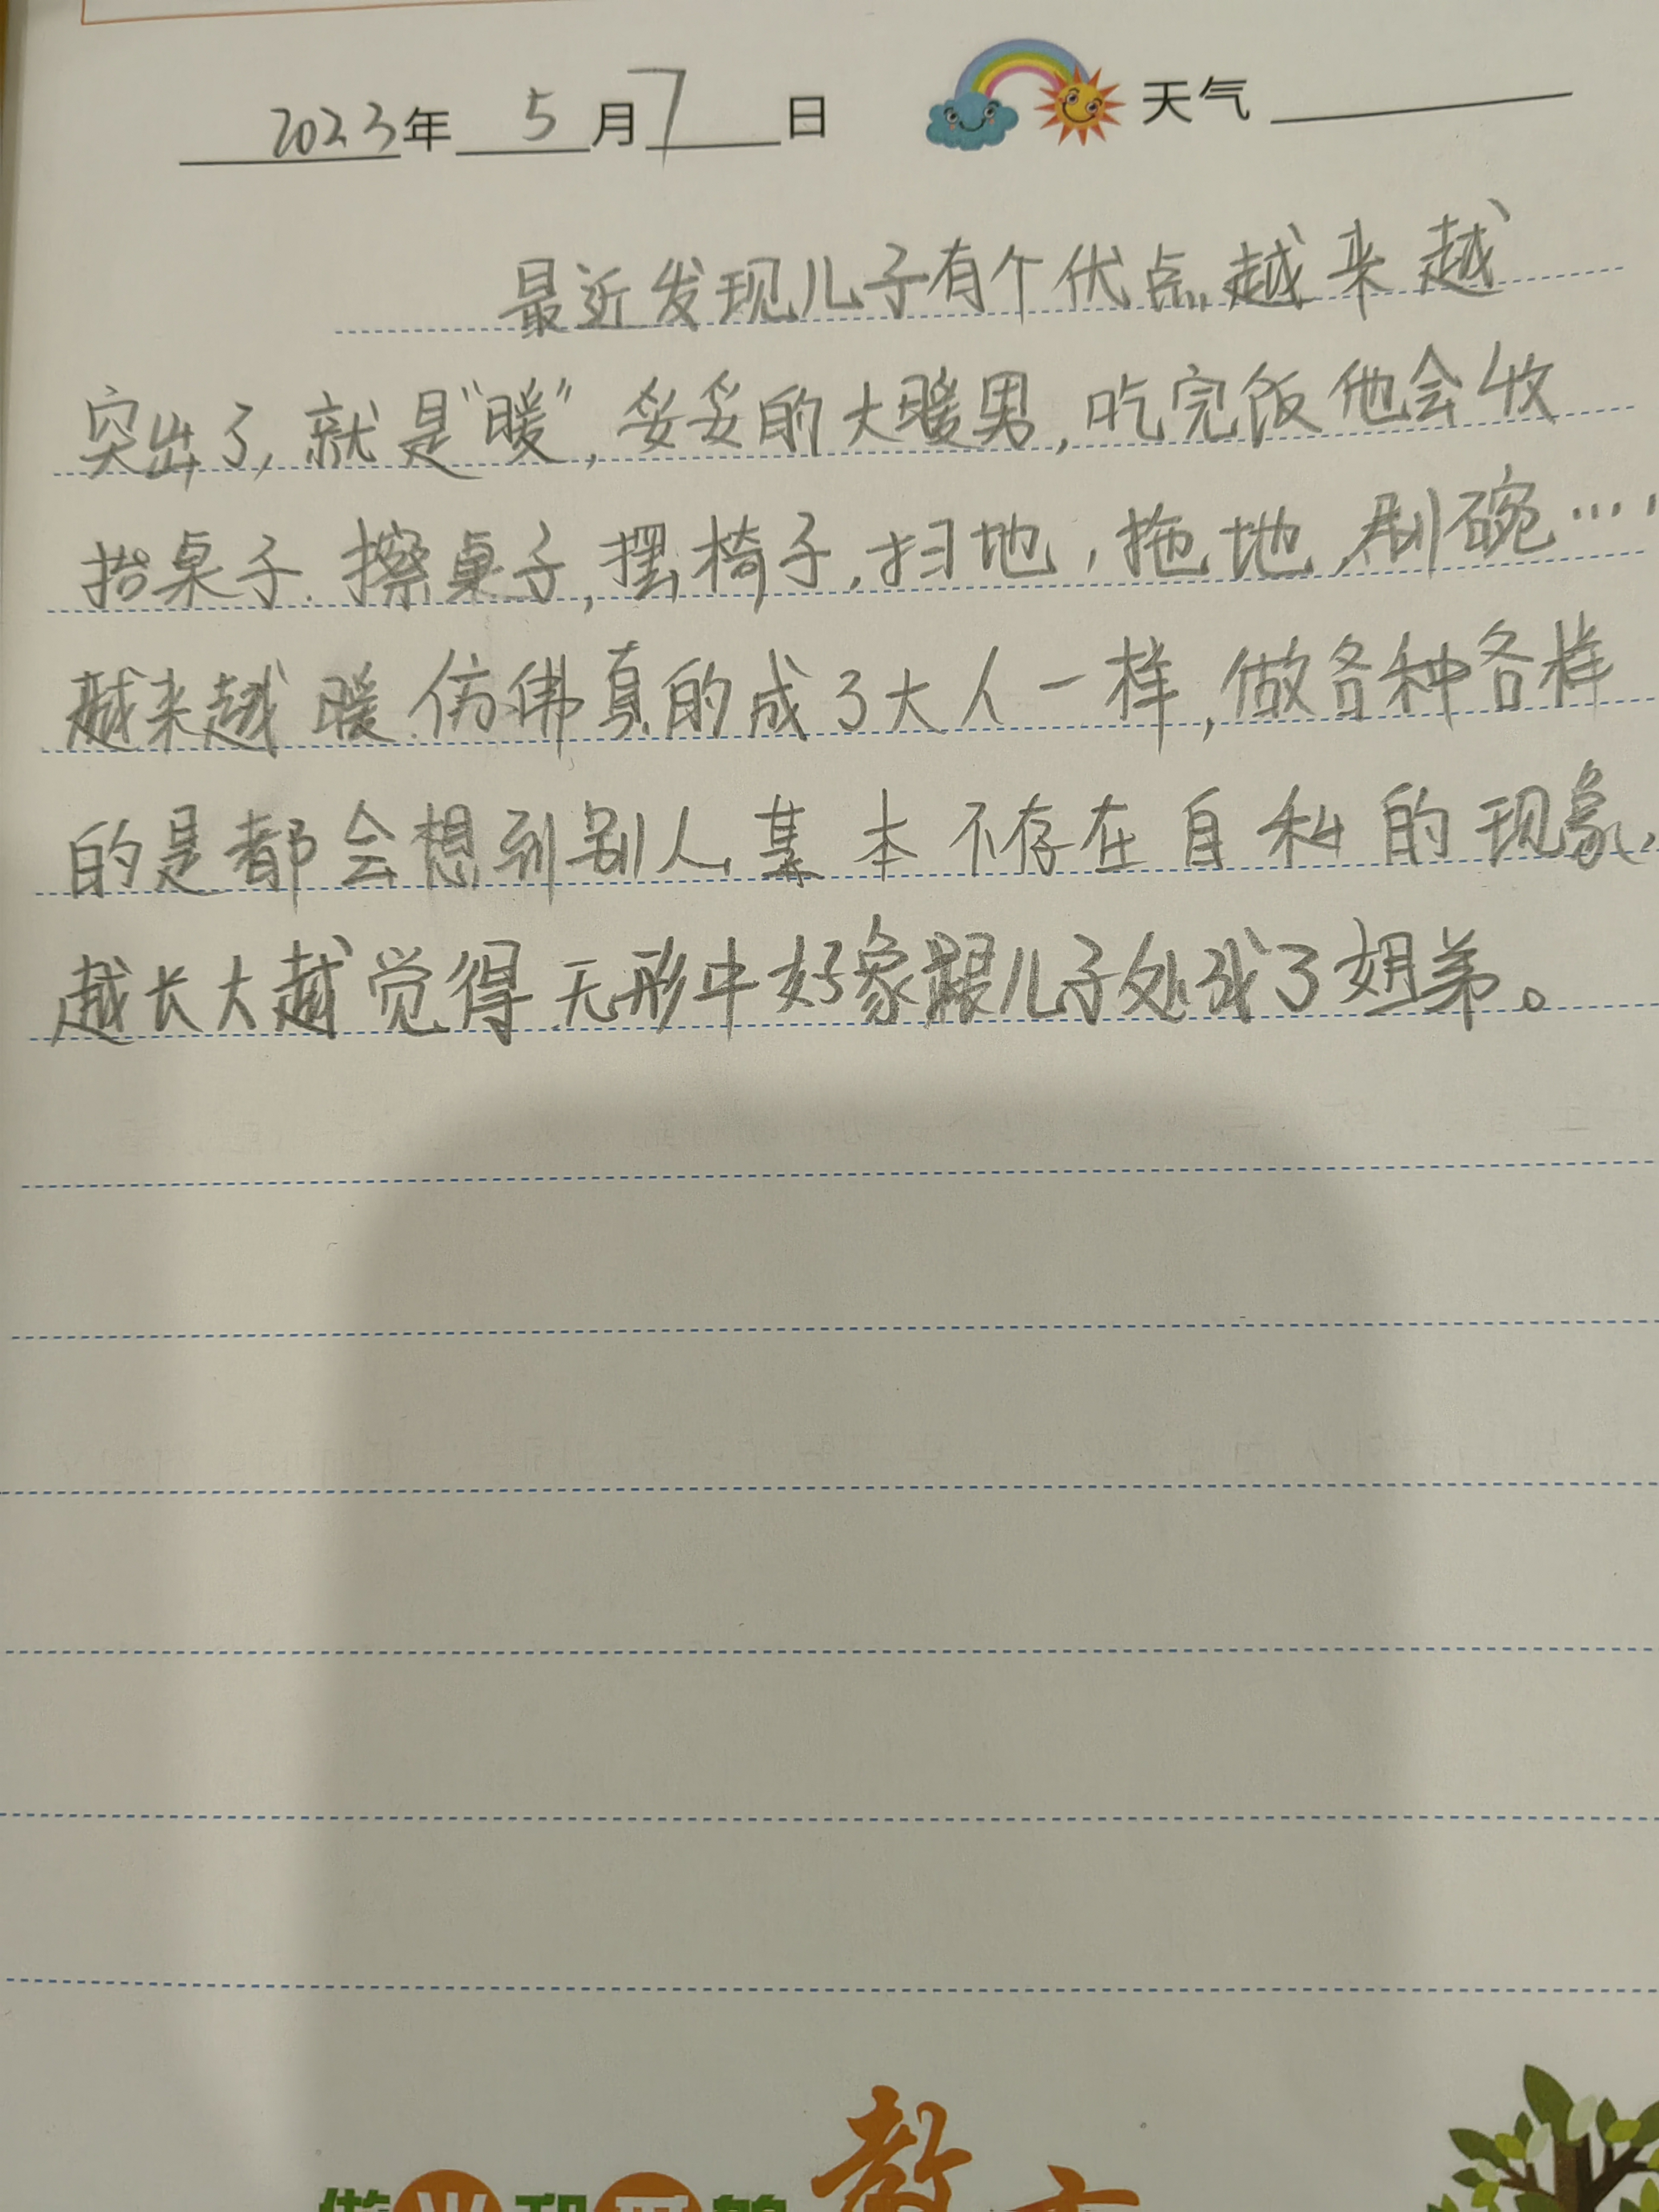 2023年 5 月 7 日 天气
最近发现儿子有个优点,越来越
突出了,就是“暖”,妥妥的大暖男,吃完饭他会收
拾桌子.擦桌子,摆椅子,扫地,拖地,刷碗……
越来越暖.仿佛真的成了大人一样,做各种各样
的是都会想到别人,基本不存在自私的现象,
越长大越觉得无形中好象跟儿子处成了姐弟。
教